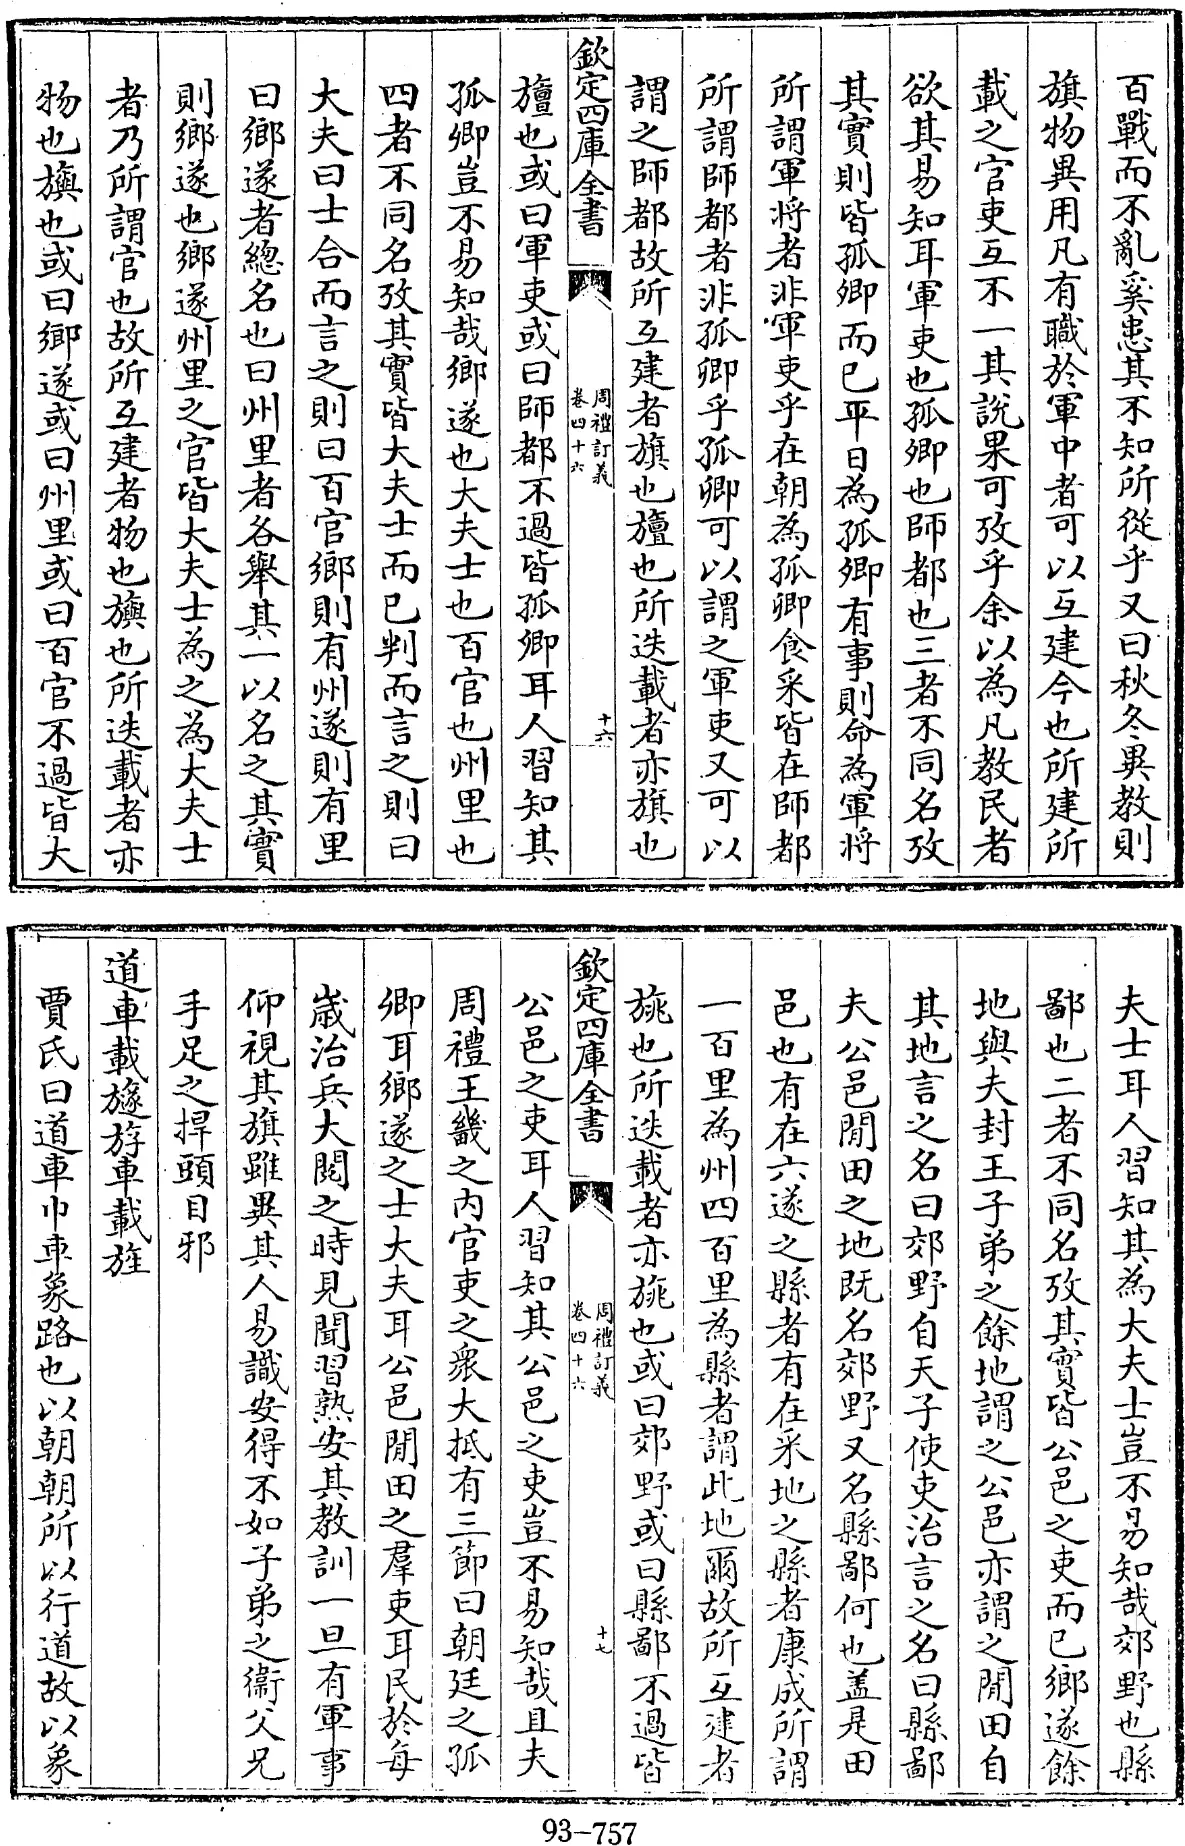 百戰而不亂奚患其不知所從乎又曰秋冬異教則
旗物異用凡有職於軍中者可以互建今也所建所
載之官吏互不一其說果可攷乎余以為凡教民者
欲其易知耳軍吏也孤卿也師都也三者不同名攷
其實則皆孤卿而已平日為孤卿有事則命為軍將
所謂軍將者非軍吏乎在朝為孤卿食采皆在師都
所謂師都者非孤卿乎孤卿可以謂之軍吏又可以
謂之師都故所互建者旗也旜也所迭載者亦旗也
欽定四庫全書
周禮訂義
卷四十六
十六
旜也或曰軍吏或曰師都不過皆孤卿耳人習知其
孤卿豈不易知哉鄉遂也大夫士也百官也州里也
四者不同名攷其實皆大夫士而已判而言之則曰
大夫曰士合而言之則曰百官鄉則有州遂則有里
曰鄉遂者總名也曰州里者各舉其一以名之其實
則鄉遂也鄉遂州里之官皆大夫士為之為大夫士
者乃所謂官也故所互建者物也旟也所迭載者亦
物也旟也或曰鄉遂或曰州里或曰百官不過皆大
夫士耳人習知其為大夫士豈不易知哉郊野也縣
鄙也二者不同名攷其實皆公邑之吏而已鄉遂餘
地與夫封王子弟之餘地謂之公邑亦謂之閒田自
其地言之名曰郊野自天子使吏治言之名曰縣鄙
夫公邑閒田之地既名郊野又名縣鄙何也蓋是田
邑也有在六遂之縣者有在采地之縣者康成所謂
一百里為州四百里為縣者謂此地爾故所互建者
旐也所迭載者亦旐也或曰郊野或曰縣鄙不過皆
欽定四庫全書
周禮訂義
卷四十六
十七
公邑之吏耳人習知其公邑之吏豈不易知哉且夫
周禮王畿之内官吏之衆大抵有三節曰朝廷之孤
卿耳鄉遂之士大夫耳公邑閒田之羣吏耳民於每
歲治兵大閱之時見聞習熟安其教訓一旦有軍事
仰視其旗雖異其人易識安得不如子弟之衞父兄
手足之捍頭目邪
道車載旞斿車載旌
賈氏曰道車巾車象路也以朝朝所以行道故以象
93-757